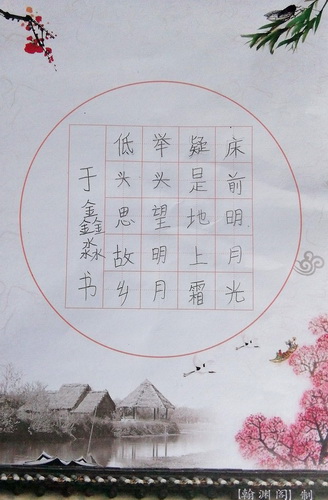 床前明月光
疑是地上霜
举头望明月
低头思故乡
于鑫淼书
【翰渊阁】制